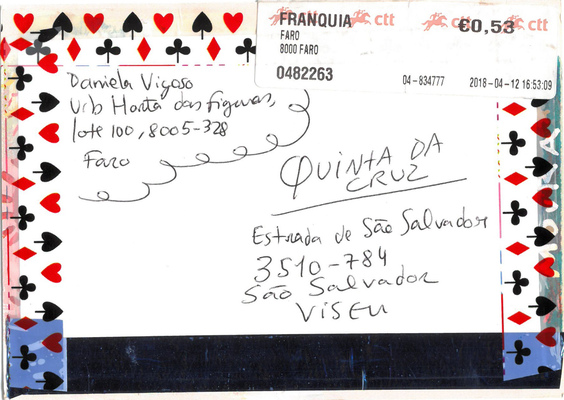 FRANQUIA
FARO
8000 FARO
ctt
€0,53
ctt
0482263
04-834777
2018-04-12 16:53:09
Daniela Vigoso
Urb Horta das figuras,
lote 100, 8005-328
Faro
QUINTA DA
CRUZ
Estrada de São Salvador
3510-784
São Salvador
Viseu